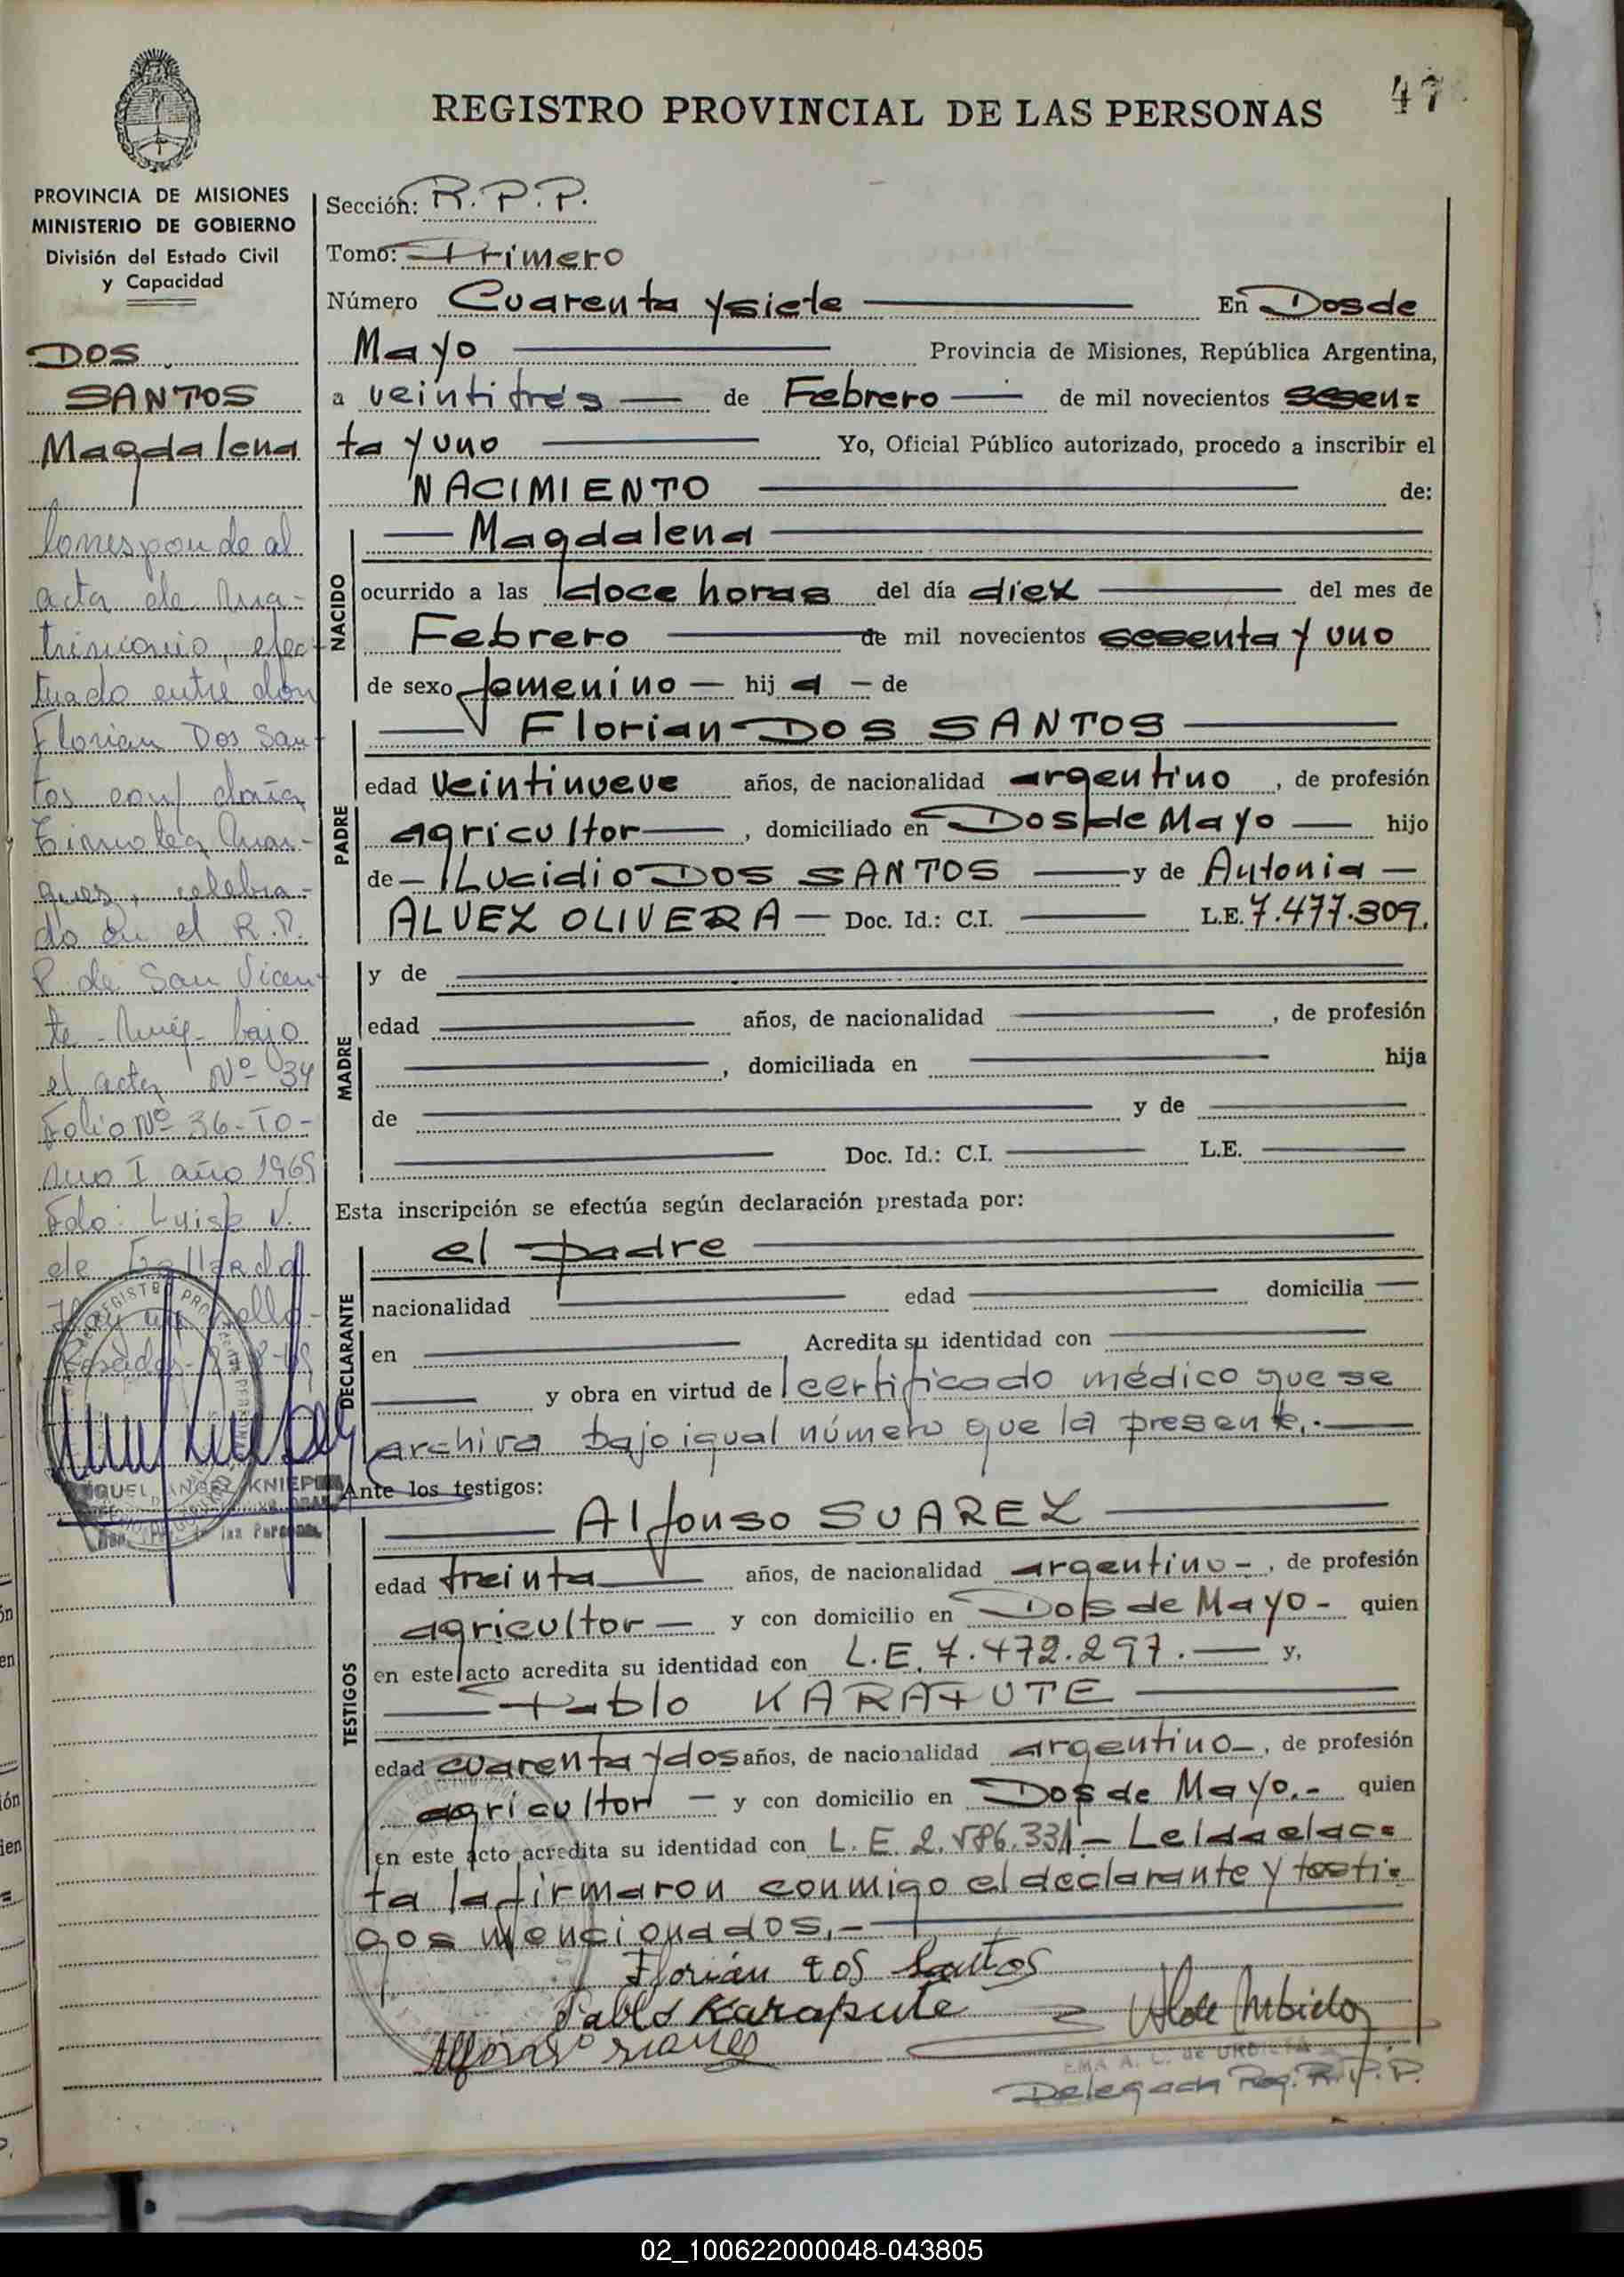 47
REGISTRO PROVINCIAL DE LAS PERSONAS
PROVINCIA DE MISIONES
MINISTERIO DE GOBIERNO
División del Estado Civil
y Capacidad
DOS
SANTOS
Magdalena
Corresponde al
acta de Ma-
trimonio, efec-
tuado entre don
Florian Dos San-
tos con doña
Mar-
ques, celebra-
do en el R.P.
P. de San Vicen-
te - bajo
el acta Nº 34
Folio Nº 36 - To-
mo I año 1969
Fdo: Luisa V.
de Gallardo
Hay un sello -
Posadas
REGISTRO
MIGUEL ANGEL
las Personas
Sección: R.P.P.
Tomo: Primero
Número Cuarenta y siete En Dos de
Mayo Provincia de Misiones, República Argentina,
a veintitrés de Febrero de mil novecientos sesen=
ta y uno Yo, Oficial Público autorizado, procedo a inscribir el
NACIMIENTO de:
NACIDO
Magdalena
ocurrido a las doce horas del día diez del mes de
Febrero de mil novecientos sesenta y uno
de sexo femenino - hij a - de
PADRE
Florian DOS SANTOS
edad veintinueve años, de nacionalidad argentino, de profesión
agricultor, domiciliado en Dos de Mayo hijo
de Lucidio DOS SANTOS y de Antonia
ALVEZ OLIVERA Doc. Id.: C.I. L.E. 7.477.309.
MADRE
y de
edad años, de nacionalidad , de profesión
, domiciliada en hija
de y de
Doc. Id.: C.I. L.E.
Esta inscripción se efectúa según declaración prestada por:
DECLARANTE
el padre
nacionalidad edad domicilia
en Acredita su identidad con
y obra en virtud de certificado médico que se
archiva bajo igual número que la presente.-
Ante los testigos:
TESTIGOS
Alfonso SUAREZ
edad treinta años, de nacionalidad argentino-, de profesión
agricultor y con domicilio en Dos de Mayo- quien
en este acto acredita su identidad con L.E. 7.472.297.- y,
Pablo KARAPUTE
edad cuarenta y dos años, de nacionalidad argentino-, de profesión
agricultor - y con domicilio en Dos de Mayo.- quien
en este acto acredita su identidad con L.E. 2.586.331- Leída el ac=
ta la firmaron conmigo el declarante y testi=
gos mencionados.-
Florián dos Santos
Pablo Karapute
Alfonso Suarez
EMA A. C. de URBIETA
Delegada Reg. R.P.P.
02_100622000048-043805